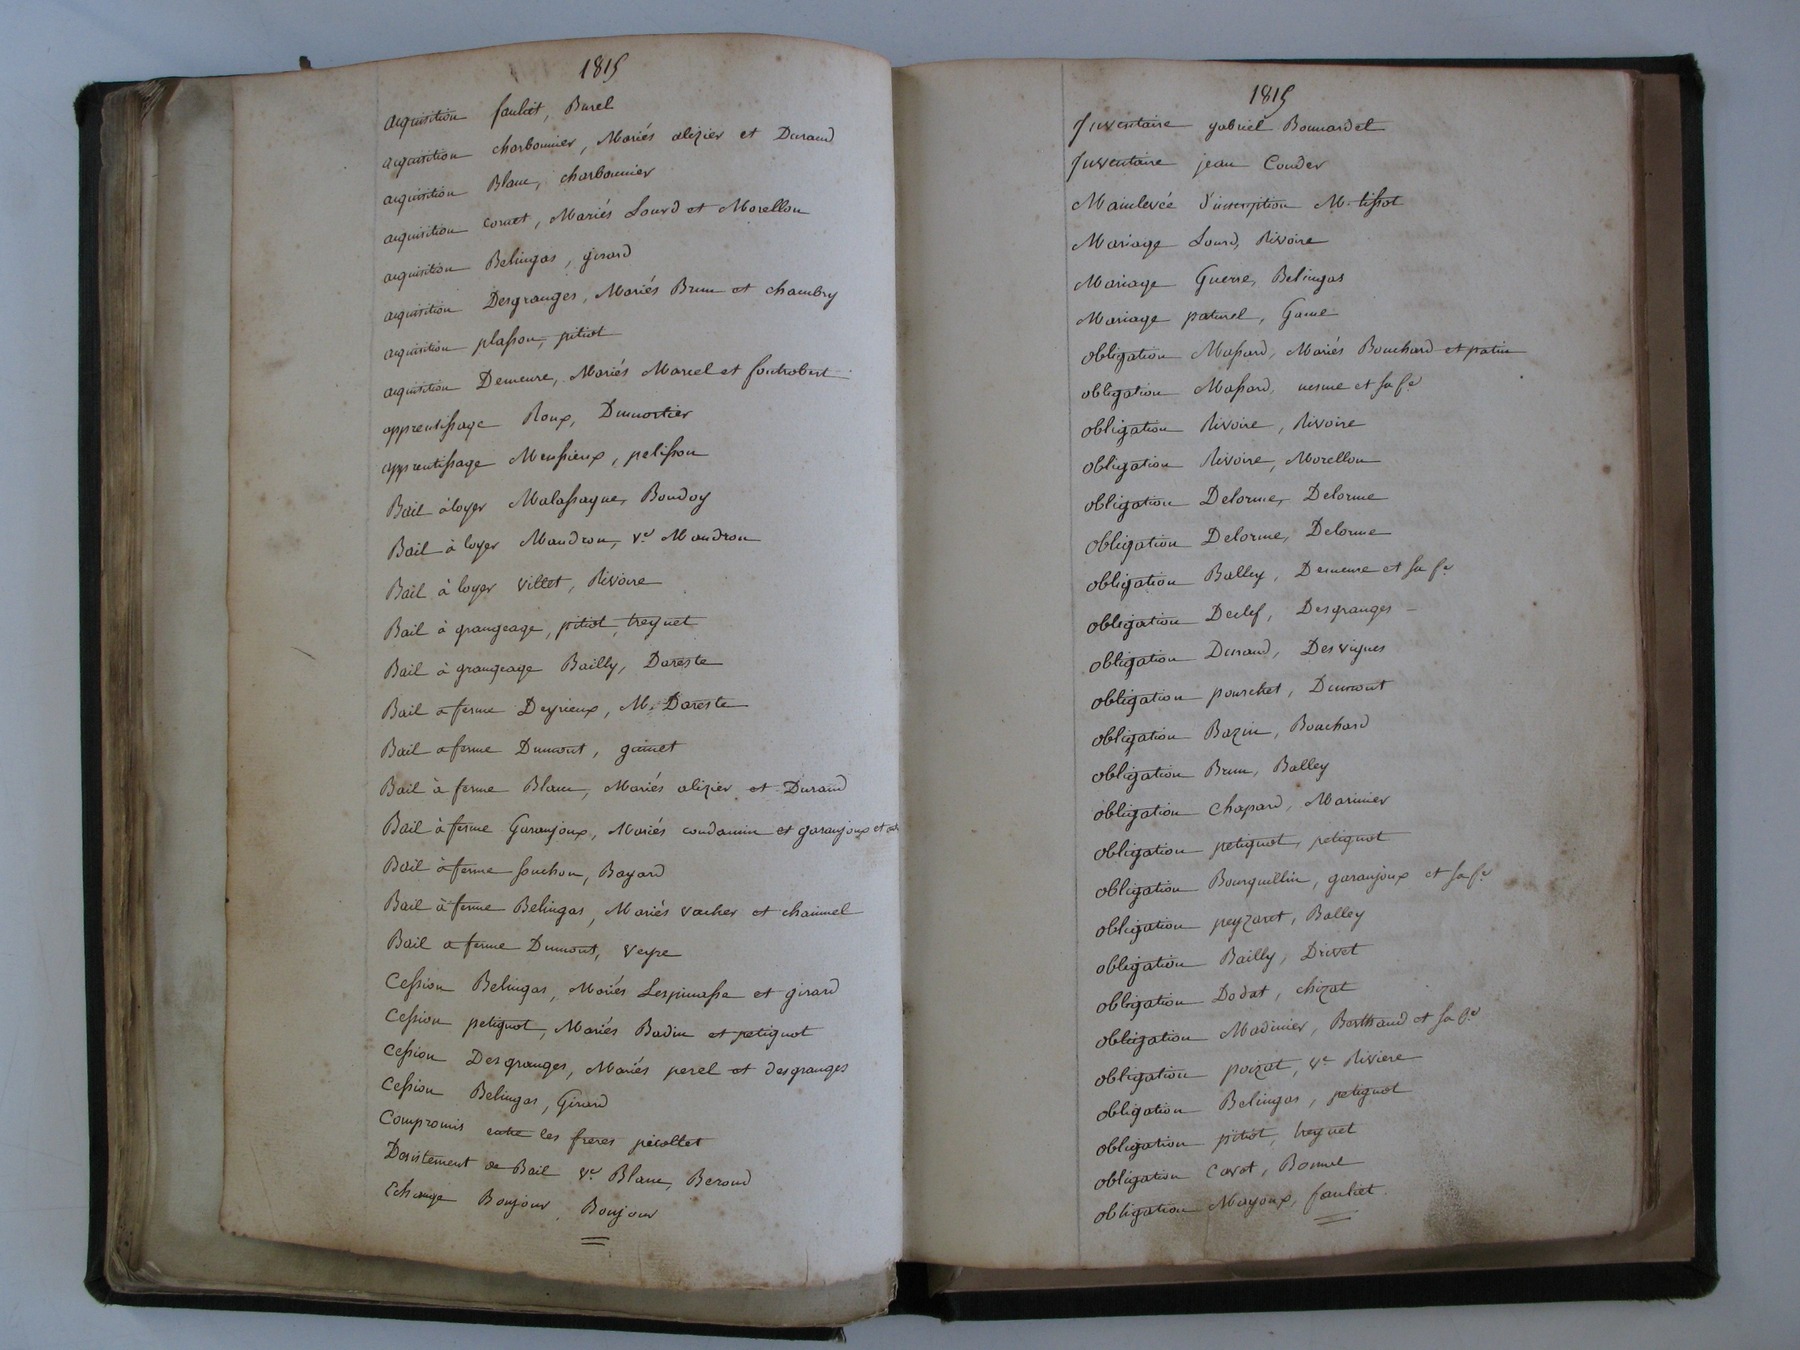 1815
acquisition fauliet, Burel
acquisition charbonnier, Mariés alizier et Durand
acquisition Blanc, charbonnier
acquisition cornet, Mariés Lourd et Morellon
acquisition Belingas, girard
acquisition Desgranges, Mariés Brun et chambry
acquisition plasson, pitiot
acquisition Demeure, Mariés Marcel et fontrobert
apprentissage Roux, Dumortier
apprentissage Meussieux, pelisson
Bail à loyer Malassagne, Boudoy
Bail à loyer Maudron, ve Maudron
Bail à loyer villet, Rivoire
Bail à grangeage, pitiot, treynet
Bail à grangeage Bailly, Dareste
Bail a ferme Deyrieux, M. Dareste
Bail a ferme Dumont, guinet
Bail à ferme Blanc, Mariés alizier et Durand
Bail à ferme Garanjoux, Mariés condamin et garanjoux et
Bail à ferme souchon, Bayard
Bail à ferme Belingas, Mariés vacher et chainnel
Bail a ferme Dumont, veyre
Cession Belingas, Mariés Lespinasse et girard
Cession petignot, Mariés Badin et petignot
Cession Desgranges, Mariés perel et desgranges
Cession Belingas, Girard
Compromis entre les freres picollet
Desistement de Bail ve Blanc, Beroud
Echange Boujour, Boujour
1815
Inventaire gabriel Bonnardel
Inventaire jean Couder
Mainlevée d'inscription M. tissot
Mariage Lourd, Rivoire
Mariage Guerre, Belingas
Mariage paturel, Game
obligation Massard, Mariés Bouchard et patin
obligation Massard, nesme et sa fe
obligation Rivoire, Rivoire
obligation Rivoire, Morellon
obligation Delorme, Delorme
obligation Delorme, Delorme
obligation Balley, Demeure et sa fe
obligation Declef, Desgranges
obligation Durand, Desvignes
obligation pourchet, Dumont
obligation Bazin, Bouchard
obligation Brun, Balley
obligation chapard, Marinier
obligation petignot, petignot
obligation Bourguillin, garanjoux et sa fe
obligation peyzaret, Balley
obligation Bailly, Drivet
obligation Dodat, chizat
obligation Madinier, Berthaud et sa fe
obligation poizat, ve Riviere
obligation Belingas, petignot
obligation pitiot, treynet
obligation Cavot, Bonnel
obligation Mayoux, fauliet